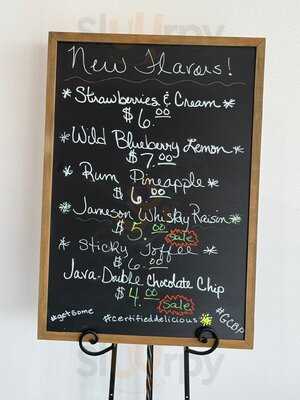 New Flavors!
*Strawberries & Cream*
$6.00
*Wild Blueberry Lemon*
$7.00
*Rum Pineapple*
$6.00
*Jameson Whisky Raisin*
$5.00 Sale
*Sticky Toffee*
$6.00
Java-Double Chocolate Chip
$4.00 Sale
#getsome
#certifieddelicious
#GCBP
sluurpy
sluurpy